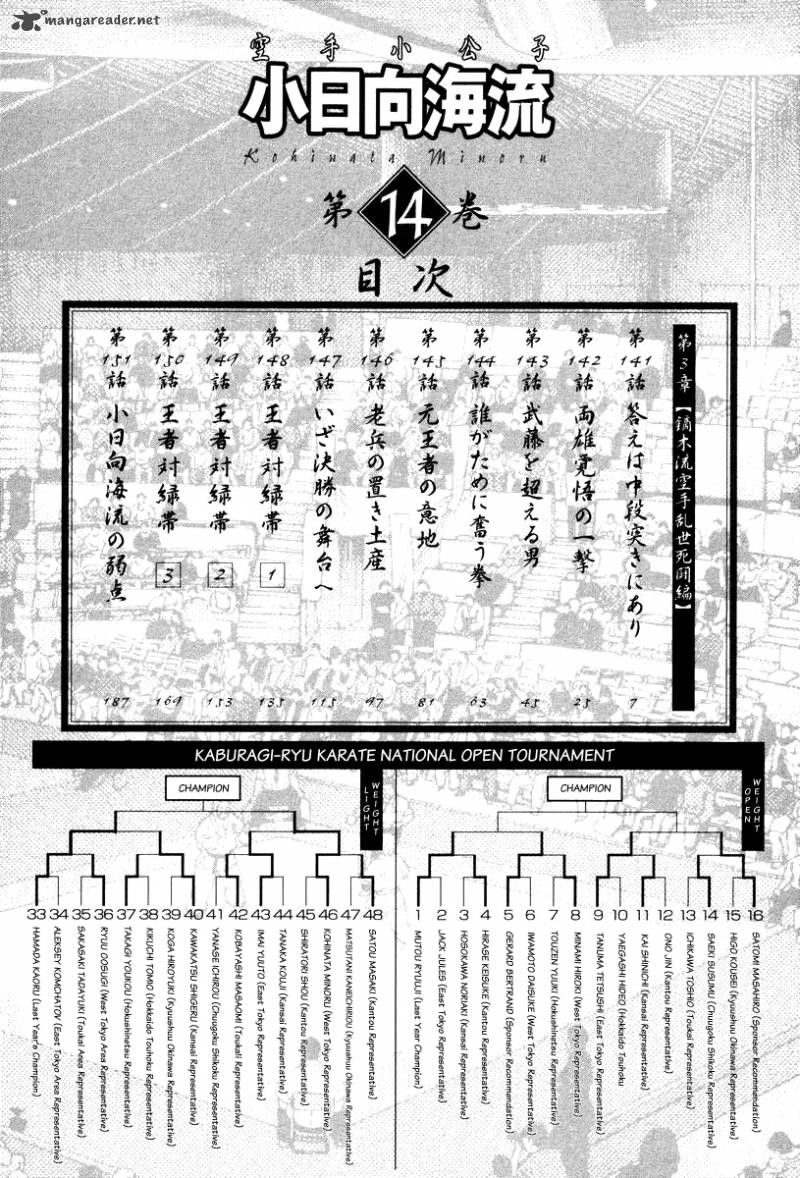 mangareader.net
空手小公子
小日向海流
Kohinata Minoru
第14巻
目次
第3章【鏑木流空手乱世死闘編】
第141話 答えは中段突きにあり 7
第142話 両雄覚悟の一撃 25
第143話 武藤を超える男 45
第144話 誰がために奮う拳 63
第145話 元王者の意地 81
第146話 老兵の置き土産 97
第147話 いざ決勝の舞台へ 115
第148話 王者対緑帯 1 135
第149話 王者対緑帯 2 153
第150話 王者対緑帯 3 169
第151話 小日向海流の弱点 187
KABURAGI-RYU KARATE NATIONAL OPEN TOURNAMENT
CHAMPION
LIGHT WEIGHT
33 HAMADA KAORU (Last Year's Champion)
34 ALEKSEY KOMCHATOV (East Tokyo Area Representative)
35 SAKASAKI TADAYUKI (Toukai Area Representative)
36 RYUU OOSUGI (West Tokyo Area Representative)
37 TAKAGI YOUKOU (Hokushinetsu Representative)
38 KIKUCHI TOMIO (Hokkaido Touhoku Representative)
39 KOGA HIROYUKI (Kyuushuu Okinawa Representative)
40 KAWAKATSU SHIGERU (Kansai Representative)
41 YANASE ICHIROU (Chuugoku Shikoku Representative)
42 KOBAYASHI MASAOMI (Toukai Representative)
43 IMAI YUUTO (East Tokyo Area Representative)
44 TANAKA KOUJI (Kansai Representative)
45 SHIRATORI SHOU (Kantou Representative)
46 KOHINATA MINORU (West Tokyo Representative)
47 MATSUTANI KANEICHIROU (Kyuushuu Okinawa Representative)
48 SATOU MASAKI (Kantou Representative)
CHAMPION
OPEN WEIGHT
1 MUTOU RYUUJI (Last Year Champion)
2 JACK JULES (East Tokyo Representative)
3 HOSOKAWA NORIAKI (Kansai Representative)
4 HIRASE KEISUKE (Kantou Representative)
5 GERARD BERTRAND (Sponsor Recommendation)
6 IWAMOTO DAISUKE (West Tokyo Representative)
7 TOUZEN YUUKI (Hokushinetsu Representative)
8 MINAMI HIROKI (West Tokyo Representative)
9 TANUMA TETSUSHI (East Tokyo Representative)
10 YAEGASHI HIDEO (Hokkaido Touhoku
11 KAI SHINICHI (Kansai Representative)
12 ONO JIN (Kantou Representative)
13 ICHIKAWA TOSHIO (Toukai Representative)
14 SAEKI SUSUMU (Chuugoku Shikoku Representative)
15 HIGO KOUSEI (Kyuushuu Okinawa Representative)
16 SATOMI MASAHIRO (Sponsor Recommendation)